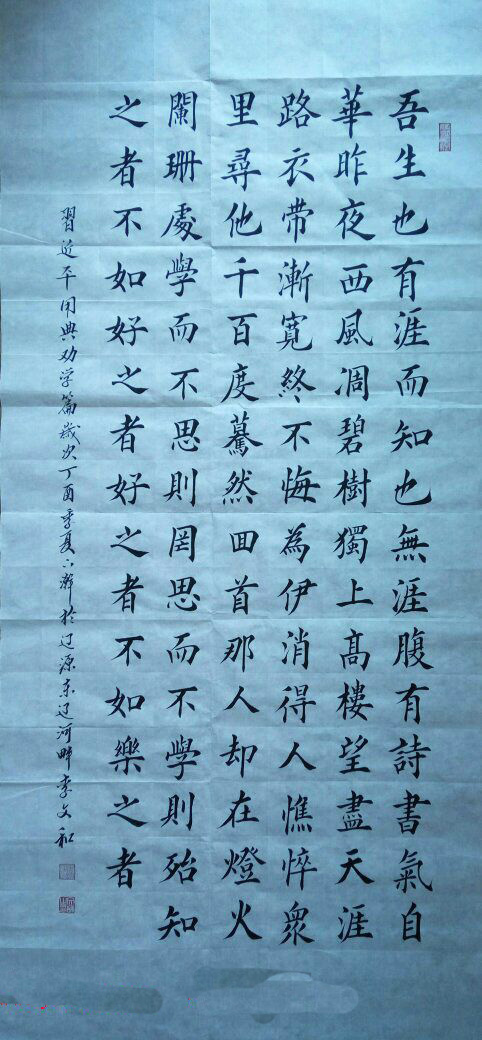 吾生也有涯而知也無涯腹有詩書氣自
華昨夜西風凋碧樹獨上高樓望盡天涯
路衣带漸寬終不悔為伊消得人憔悴衆
里尋他千百度驀然回首那人却在燈火
闌珊處學而不思則罔思而不學則殆知
之者不如好之者好之者不如樂之者
習近平用典劝学篇歲次丁酉季夏下澣於辽源东辽河畔李文和